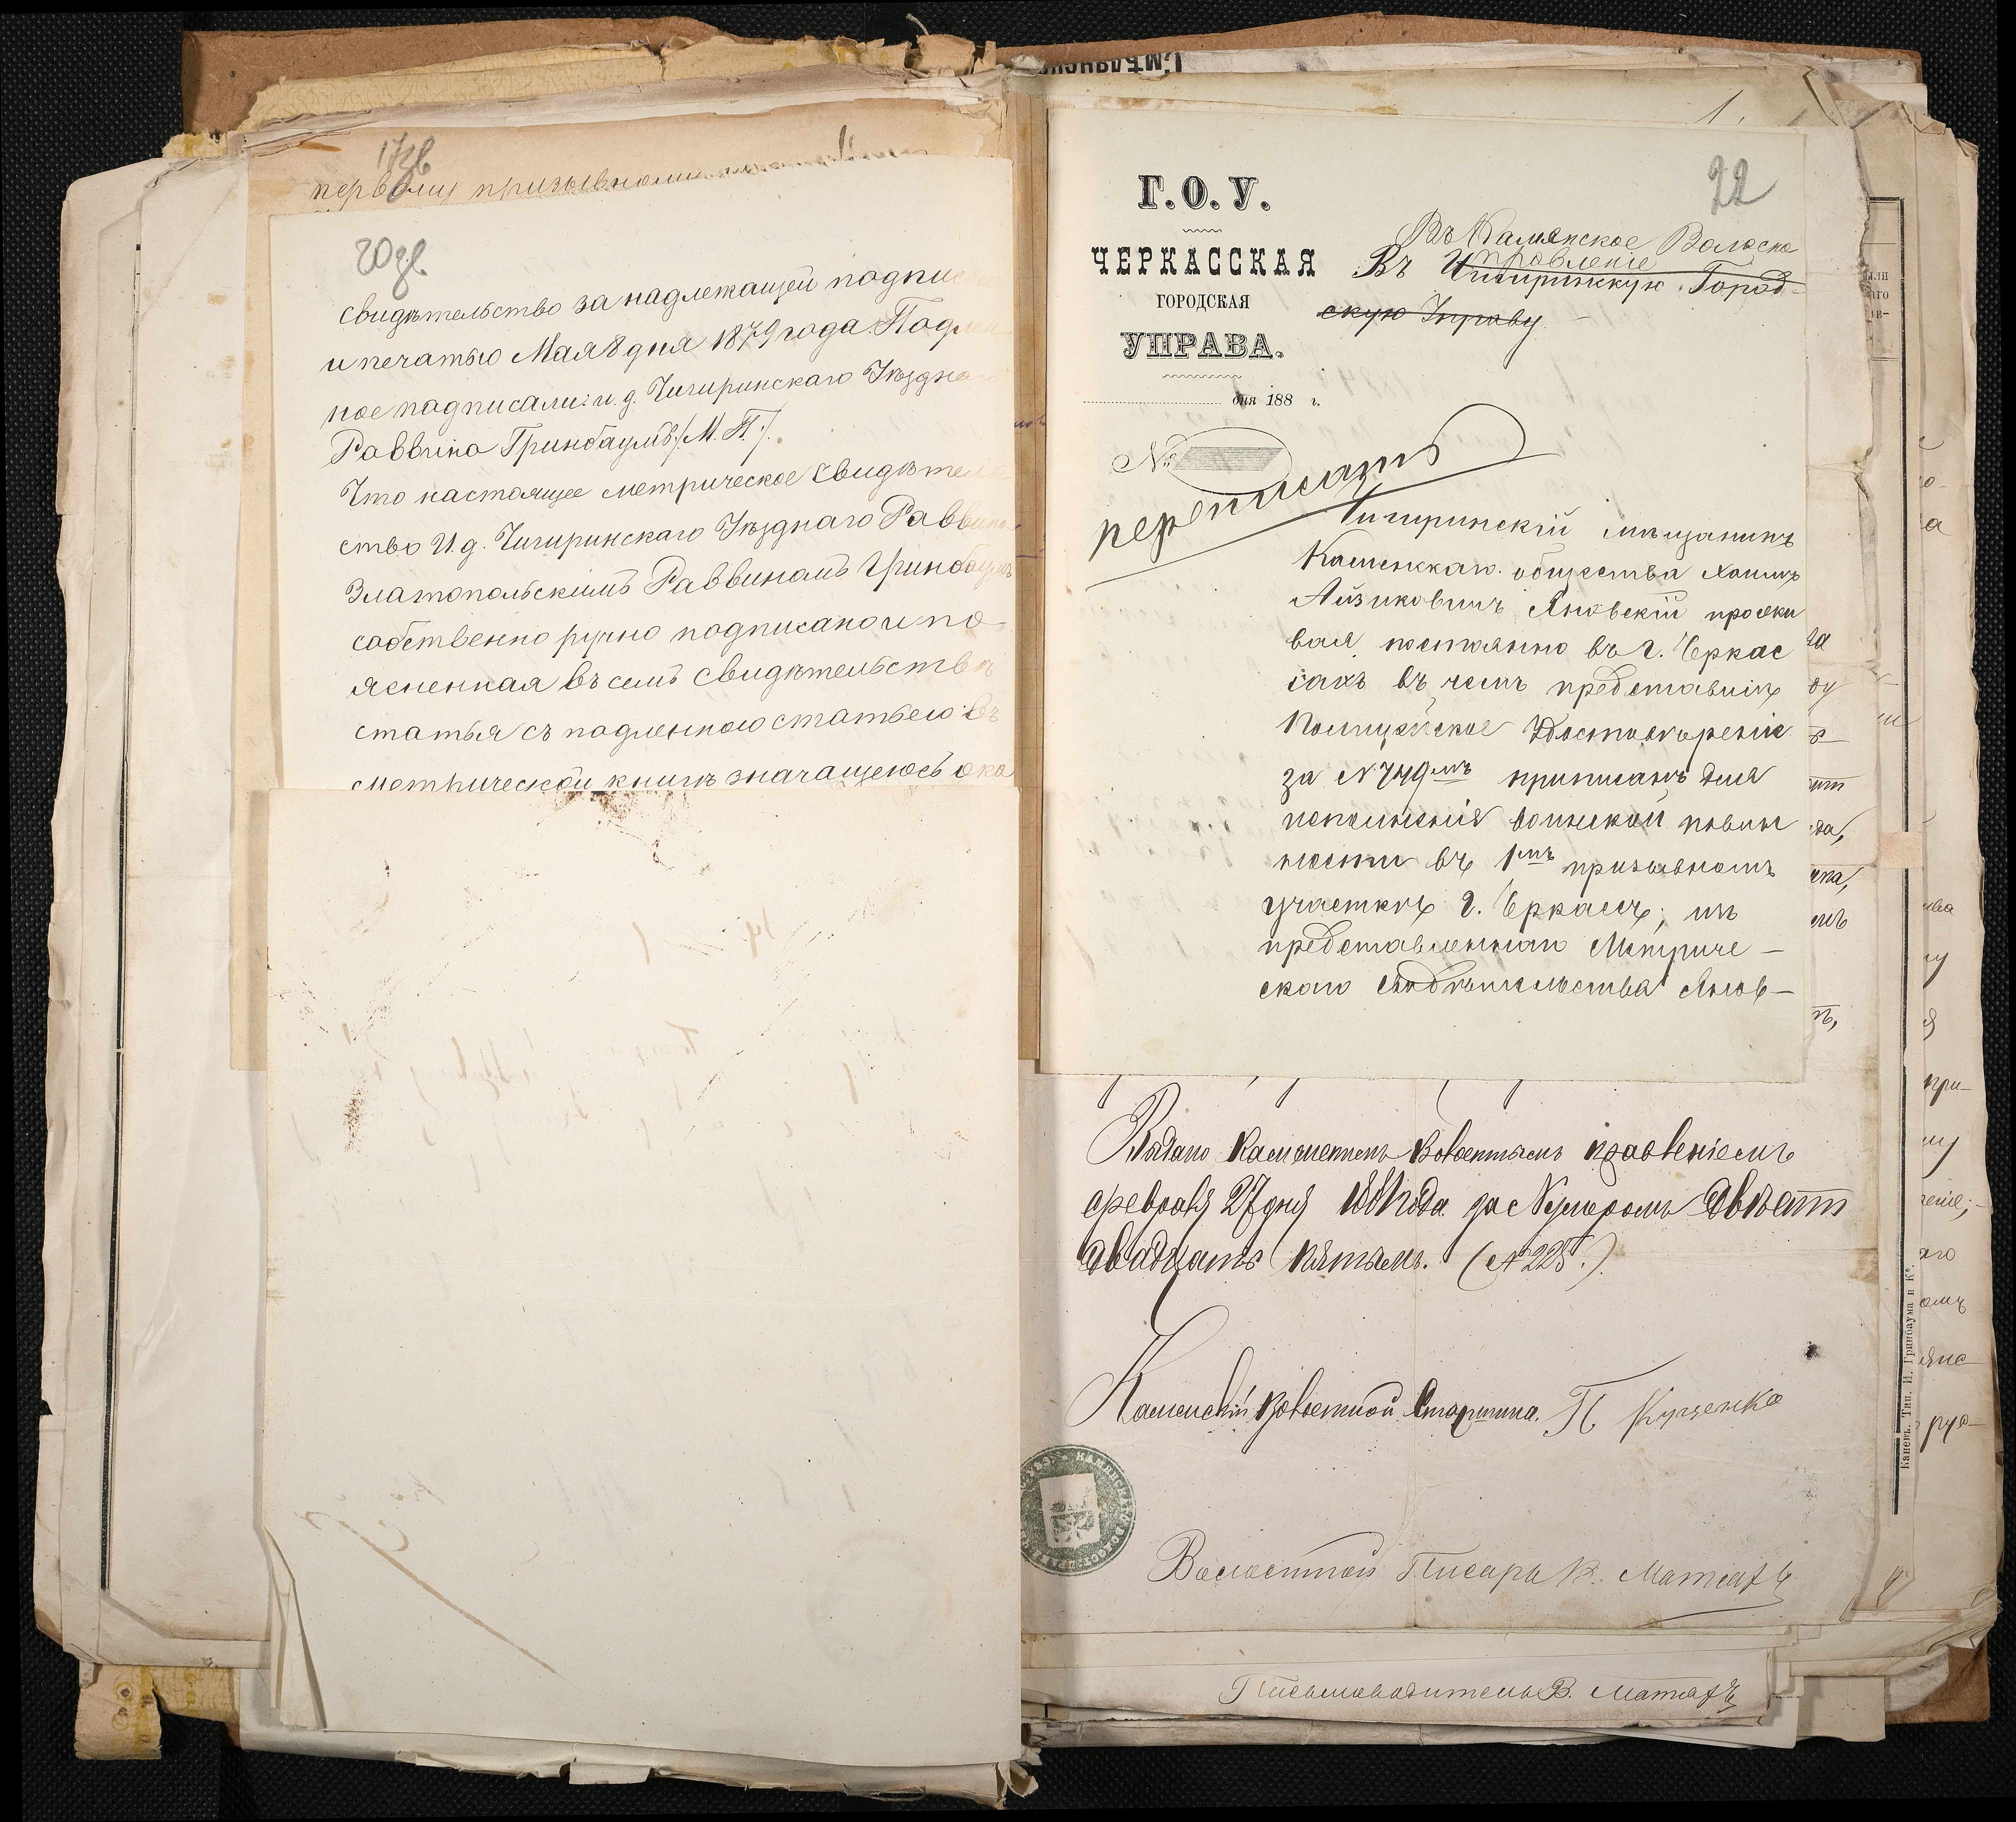 17зв
первому призывному
20зв.
свидѣтельство за надлежащей подпис
и печатью Мая 8 дня 1879 года. Подлин
ное подписали: и. д. Чигиринскаго Уѣздна
Раввина Гринбаумъ /М. П./.
Что настоящее метрическое свидѣтел
ство И. д. Чигиринскаго Уѣзднаго Раввина
Златопольскимъ Раввиномъ Гринбаумъ
собственно ручно подписано и по
ясненная въ семъ свидѣтельствѣ
статья съ подленною статьею въ
метрической книгѣ значащеюсь ока
Г. О. У.
ЧЕРКАССКАЯ
ГОРОДСКАЯ
УПРАВА.
дня 188 г.
№
переписать
1.
22
Въ Камянское Волосно
правленіе
Въ Чигиринскую Город-
скую Управу
Чигиринскій мѣщанинъ
Каменскаго общества Хаимъ
Айзиковичъ Яновскій прожи
вая постоянно въ г. Черкас
сахъ въ чемъ представилъ
Полицейское Удостовѣреніе
за №749мъ приписанъ для
исполненія воинской повин
ности въ 1мъ призывномъ
участкѣ г. Черкассъ, изъ
представленнаго Метриче-
скаго свидѣтельства Янов-
Выдано Каменскимъ Волостнымъ правленіемъ
февраля 27 дня года за Нумеромъ двѣсти
двадцать пятымъ. (№ 225.)
Каменскій Волостной Старшина. П Куценко
Волостной Писарь В. Матсахъ
Письмоводитель В. Матсахъ
Каневъ. Тип. И. Гринбаума и К°.